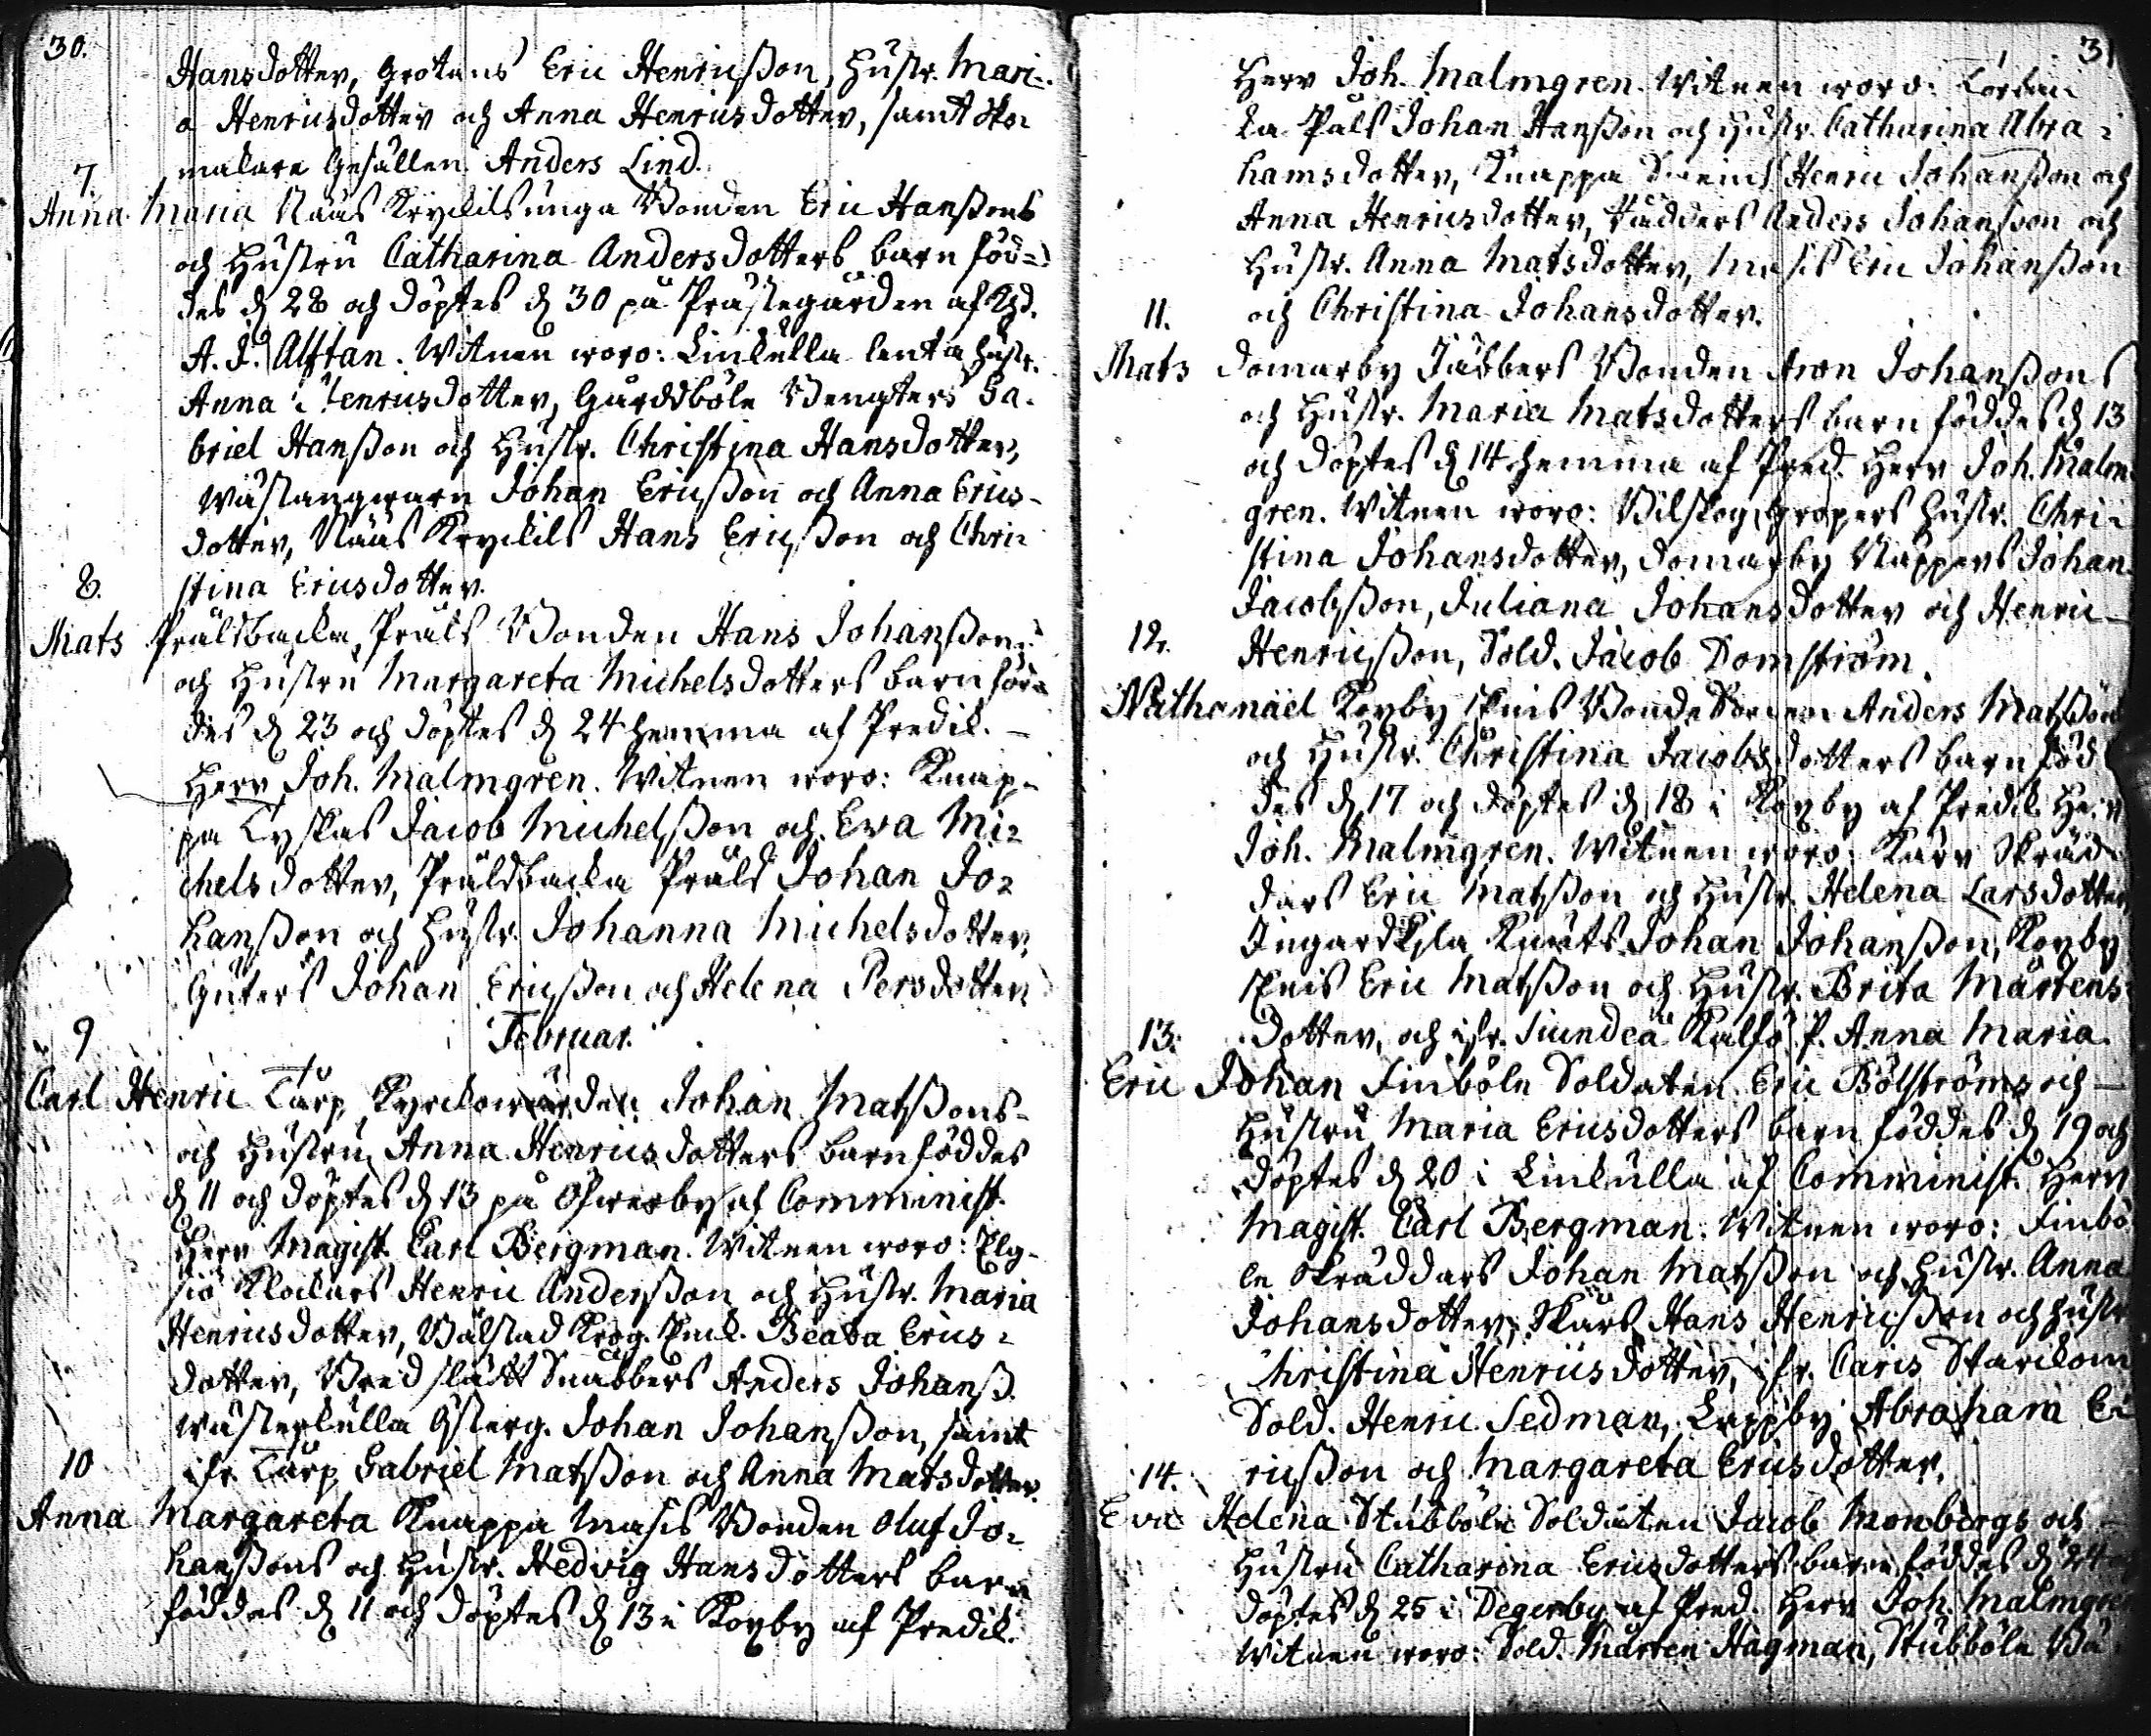 30.
Hansdotter, Grotens Eric Henricsson, Hustr. Mari-
a Henricsdotter och Anna Henricsdotter, samt Sko-
makare Gesällen Anders Lind.
7.
Anna Maria Näas Kryckils unga Bonden Eric Hanssons
och Hustru Catharina Andersdotters barn föd-
des d. 28 och döptes d. 30 på Prästegården af
A. J. Alftan. Witnen woro: Linkulla Hustr.
Anna Henricsdotter, Gårdsböle Bengters Ga-
briel Hansson och Hustr. Christina Hansdotter,
Wästangqwarn Johan Ericsson och Anna Erics-
dotter, Näas Kryckils Hans Ericsson och Chri-
stina Ericsdotter.
8.
Mats Prälsbacka, Präls Bonden Hans Johanssons
och Hustru Margareta Michelsdotters barn föd-
des d. 23 och döptes d. 24 hemma af Predik.
Herr Joh. Malmgren. Witnen woro: Knap-
pa Tyskas Jacob Michelsson och Ewa Mi-
chelsdotter, Prälsbacka Präls Johan Jo-
hansson och Hustr. Johanna Michelsdotter,
Guters Johan Ericsson och Helena Persdotter
Februar.
9
Carl Henric Tårp Kyrckowärden Johan Matssons
och Hustru Anna Henricsdotters barn föddes
d. 11 och döptes d. 13 på Ofwerby af Comminist.
Herr Magist. Carl Bergman. Witnen woro: Elg-
siö Klockars Henric Andersson och Hustr. Maria
Henricsdotter, Bålstad Krog. Beata Erics-
dotter, Bredslätt Snäbbers Anders Johanss.
Wästerkulla Johan Johansson, samt
ifr. Tårp Gabriel Matsson och Anna Matsdotter.
10
Anna Margareta Knappa Masis Bonden Oluf Jo-
hanssons och Hustr. Hedvig Hansdotters barn
föddes d. 11 och döptes d. 13 i Koxby af Predik.
31
Herr Joh. Malmgren. Witnen woro:
Påls Johan Hansson och Hustr. Catharina Abra-
hamsdotter, Knappa Henric Johansson och
Anna Henricsdotter, Anders Johansson och
Hustr. Anna Matsdotter, Masis Eric Johansson
och Christina Johansdotter.
11.
Mats Domarby Jäbbers Bonden Aron Johanssons
och Hustr. Maria Matsdotters barn föddes d. 13
och döptes d. 14 hemma af Pred. Herr Joh. Malm-
gren. Witnen woro: Bilskog Gropers Hustr. Chri-
stina Johansdotter, Domarby Näppers Johan
Jacobsson, Juliana Johansdotter och Henric
12.
Henricsson, Sold. Jacob Domström.
Nathanael Koxby Bonde Sonen Anders Matssons
och Hustr. Christina Jacobsdotters barn föd
des d. 17 och döptes d. 18 i Koxby af Predik. Herr
Joh. Malmgren. Witnen woro: Kärr Skräd-
dars Eric Matsson och Hustr. Helena Larsdotter
Ingardskila Knuts Johan Johansson, Koxby
Eric Matsson och Hustr. Brita Mårtens-
13. dotter, och ifr. Siundeå Anna Maria.
Eric Johan Finböle Soldaten Eric Bölströms och
Hustru Maria Ericsdotters barn föddes d. 19 och
döptes d. 20 i Linkulla af Comminist. Herr
Magist. Carl Bergman. Witnen woro: Finbö-
le Skräddars Johan Matsson och Hustr. Anna
Johansdotter, Hans Henricsson och Hustr
Christina Henricsdotter, ifr. Caris Starckom
Sold. Henric Sedman, Lappby Abraham E-
14. ricsson och Margareta Ericsdotter.
Eva Helena Stubböle Soldaten Jacob Monbergs och
Hustru Catharina Ericsdotters barn föddes d. 24
döptes d. 25 i Degerby af Pred. Herr Joh. Malmgren
Witnen woro: Sold. Mårten Hagman, Stubböle